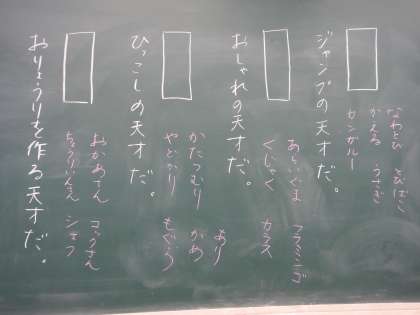 なわとび とびばこ
かえる うさぎ
カンガルー
ジャンプの天才だ。
あらいぐま フラミンゴ
くじゃく カラス
おしゃれの天才だ。
あり
かたつむり かめ
やどかり もぐら
ひっこしの天才だ。
おかあさん コックさん
シェフ
おりょうりを作る天才だ。